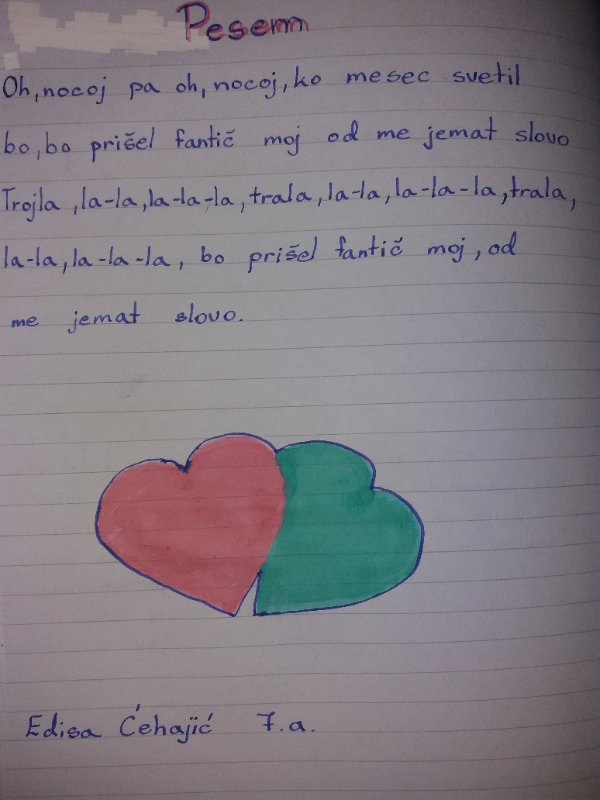 Pesem
Oh, nocoj pa oh, nocoj, ko mesec svetil
bo, bo prišel fantič moj od me jemat slovo
Trojla, la-la, la-la-la, trala, la-la, la-la-la, trala,
la-la, la-la-la, bo prišel fantič moj, od
me jemat slovo.
Edisa Ćehajić 7.a.